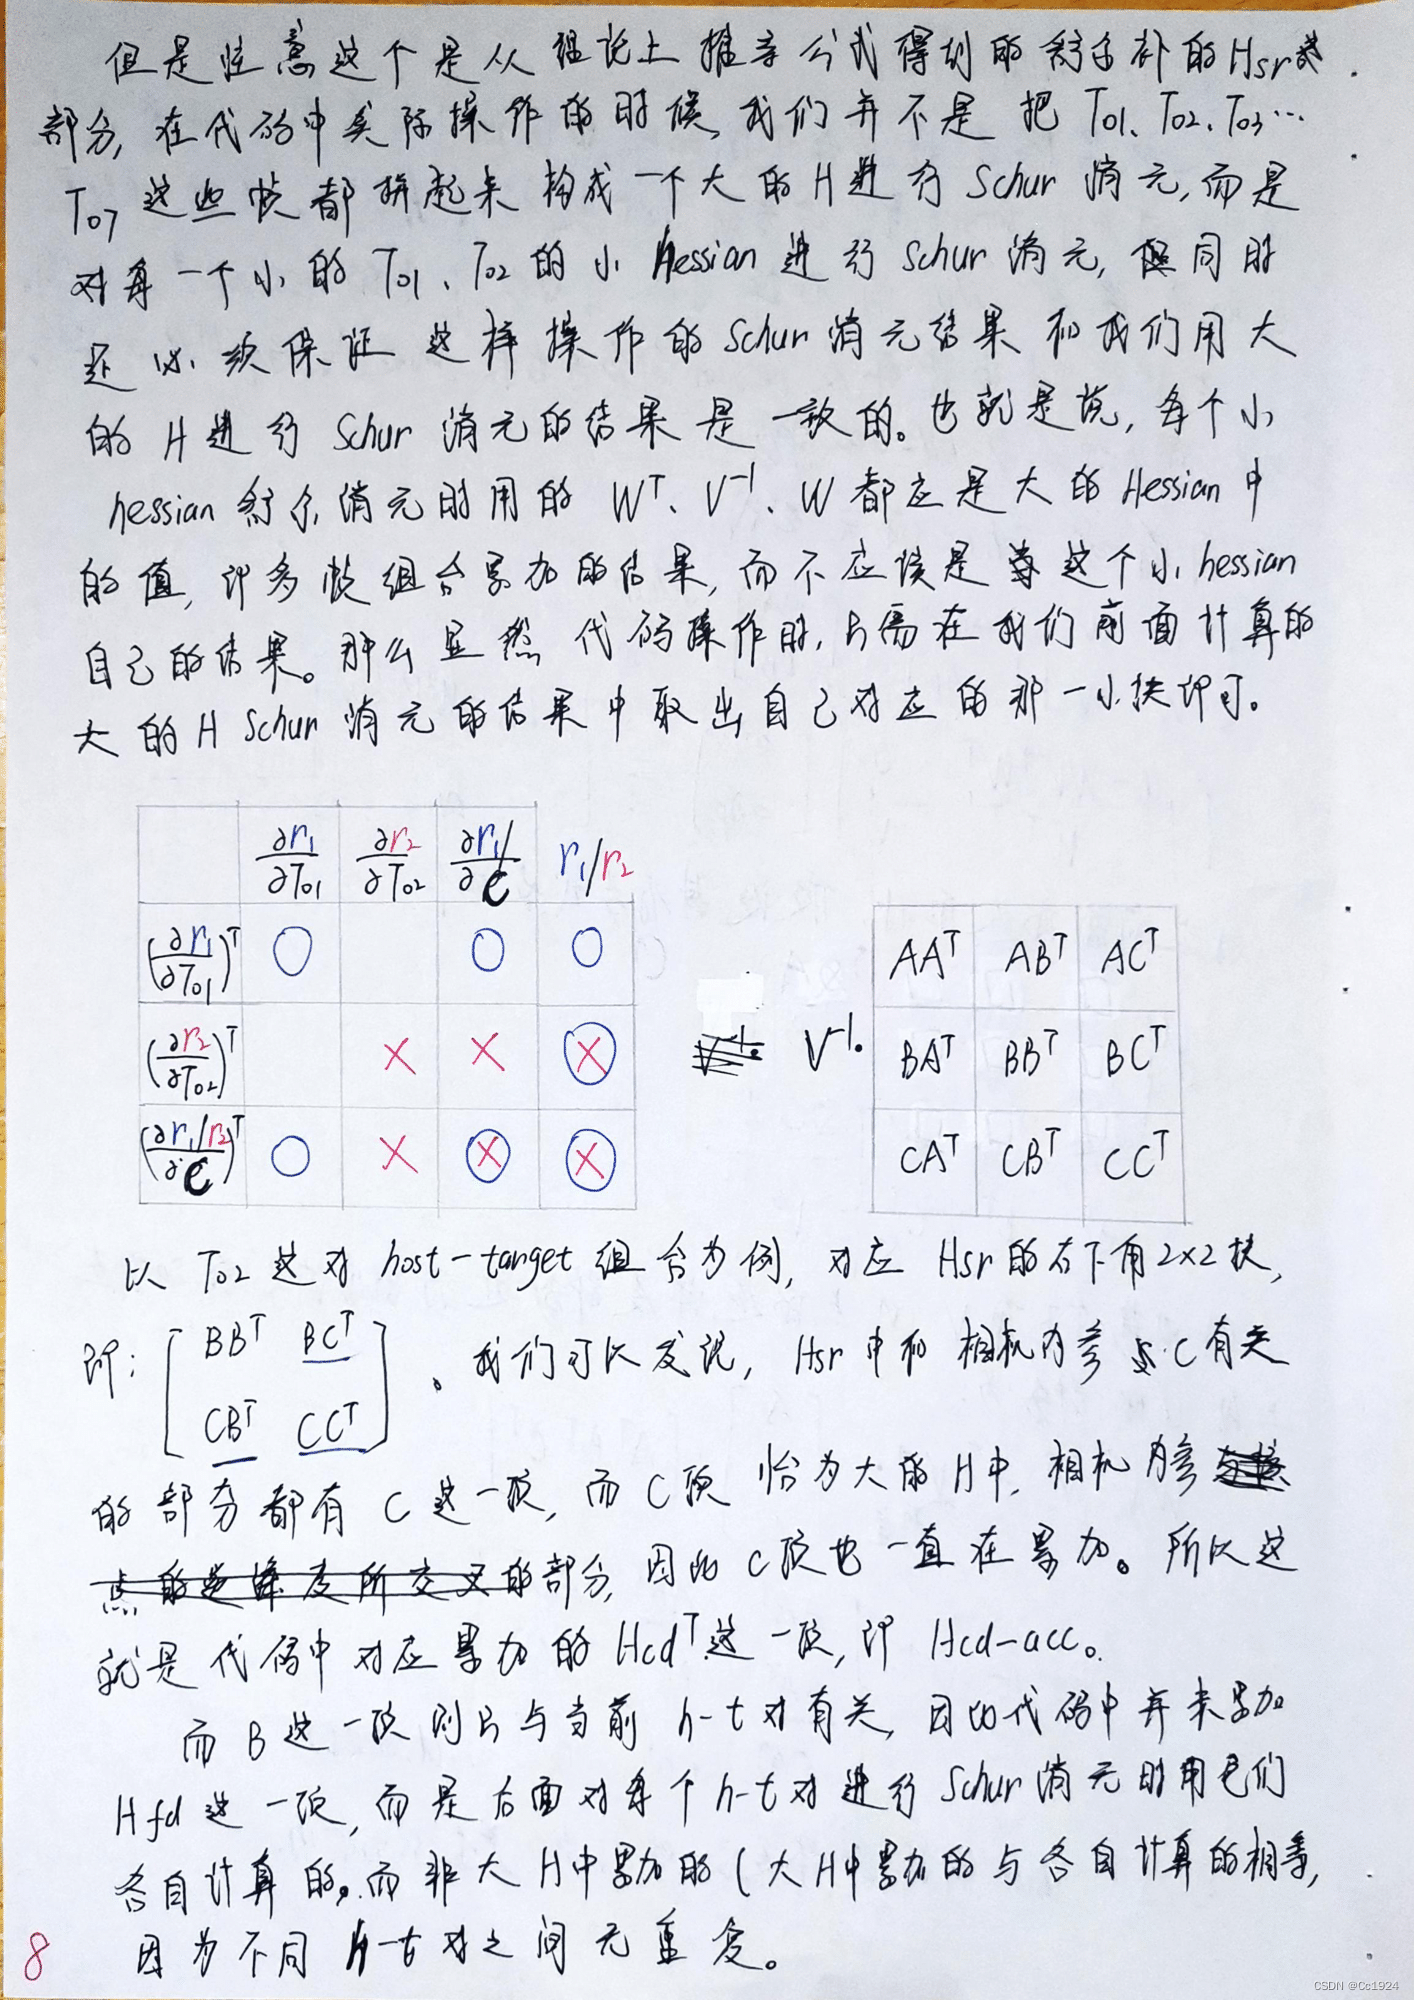 但是注意这个是从理论上推导公式得到的舒尔补的Hsr
部分,在代码中实际操作的时候,我们并不是把T01、T02、T03…
T07这些帧都拼起来构成一个大的H进行Schur消元,而是
对每一个小的T01、T02的小Hessian进行Schur消元,但同时
还必须保证这样操作的Schur消元结果和我们用大
的H进行Schur消元的结果是一致的。也就是说,每个小
hessian舒尔消元时用的Wᵀ、V⁻¹、W都应是大的Hessian中
的值,即多帧组合累加的结果,而不应该是这个小hessian
自己的结果。那么显然代码操作时,只需在我们前面计算的
大的H Schur消元的结果中取出自己对应的那一小块即可。
∂r₁/∂T01 ∂r₂/∂T02 ∂r₁/∂C r₁/r₂
(∂r₁/∂T01)ᵀ ○ ○ ○
(∂r₂/∂T02)ᵀ × × ⊗
(∂r₁/r₂/∂C)ᵀ ○ × ⊗ ⊗
V⁻¹·
AAᵀ ABᵀ ACᵀ
BAᵀ BBᵀ BCᵀ
CAᵀ CBᵀ CCᵀ
以T02这对host-target组合为例,对应Hsr的右下角2×2块,
即:[BBᵀ BCᵀ
CBᵀ CCᵀ]。我们可以发现,Hsr中和相机内参C有关
的部分都有C这一项,而C项恰为大的H中,相机内参
点的逆深度所交叉的部分,因此C项也一直在累加。所以这
就是代码中对应累加的Hcdᵀ这一项,即Hcd-acc。
而B这一项则只与当前h-t对有关,因此代码中并未累加
Hfd这一项,而是后面对每个h-t对进行Schur消元时用它们
各自计算的。而非大H中累加的(大H中累加的与各自计算的相等,
因为不同h-t对之间无重复。
8
CSDN @Cc1924